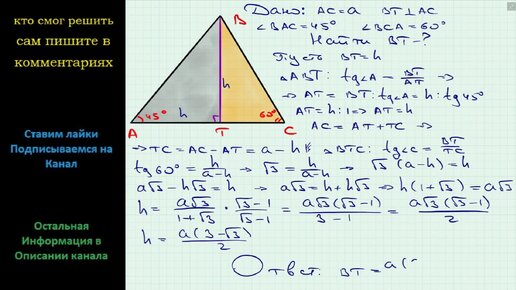 кто смог решить
сам пишите в
комментариях
Ставим лайки
Подписываемся на
Канал
Остальная
Информация в
Описании канала
B
h
45°
h
60°
A
T
C
Дано: AC = a BT ⊥ AC
∠BAC = 45° ∠BCA = 60°
Найти BT - ?
Пусть BT = h
△ABT: tg∠A = BT/AT ⇒
⇒ AT = BT : tg∠A = h : tg45°
AT = h : 1 ⇒ AT = h
AC = AT + TC ⇒
⇒ TC = AC - AT = a - h △BTC: tg∠C = BT/TC
tg60° = h/(a-h) ⇒ √3 = h/(a-h) ⇒ √3 (a-h) = h
a√3 - h√3 = h ⇒ a√3 = h + h√3 ⇒ h(1+√3) = a√3
h = a√3/(1+√3) · (√3-1)/(√3-1) = a√3(√3-1)/(3-1) = a√3(√3-1)/2
h = a(3-√3)/2
Ответ: BT = a(